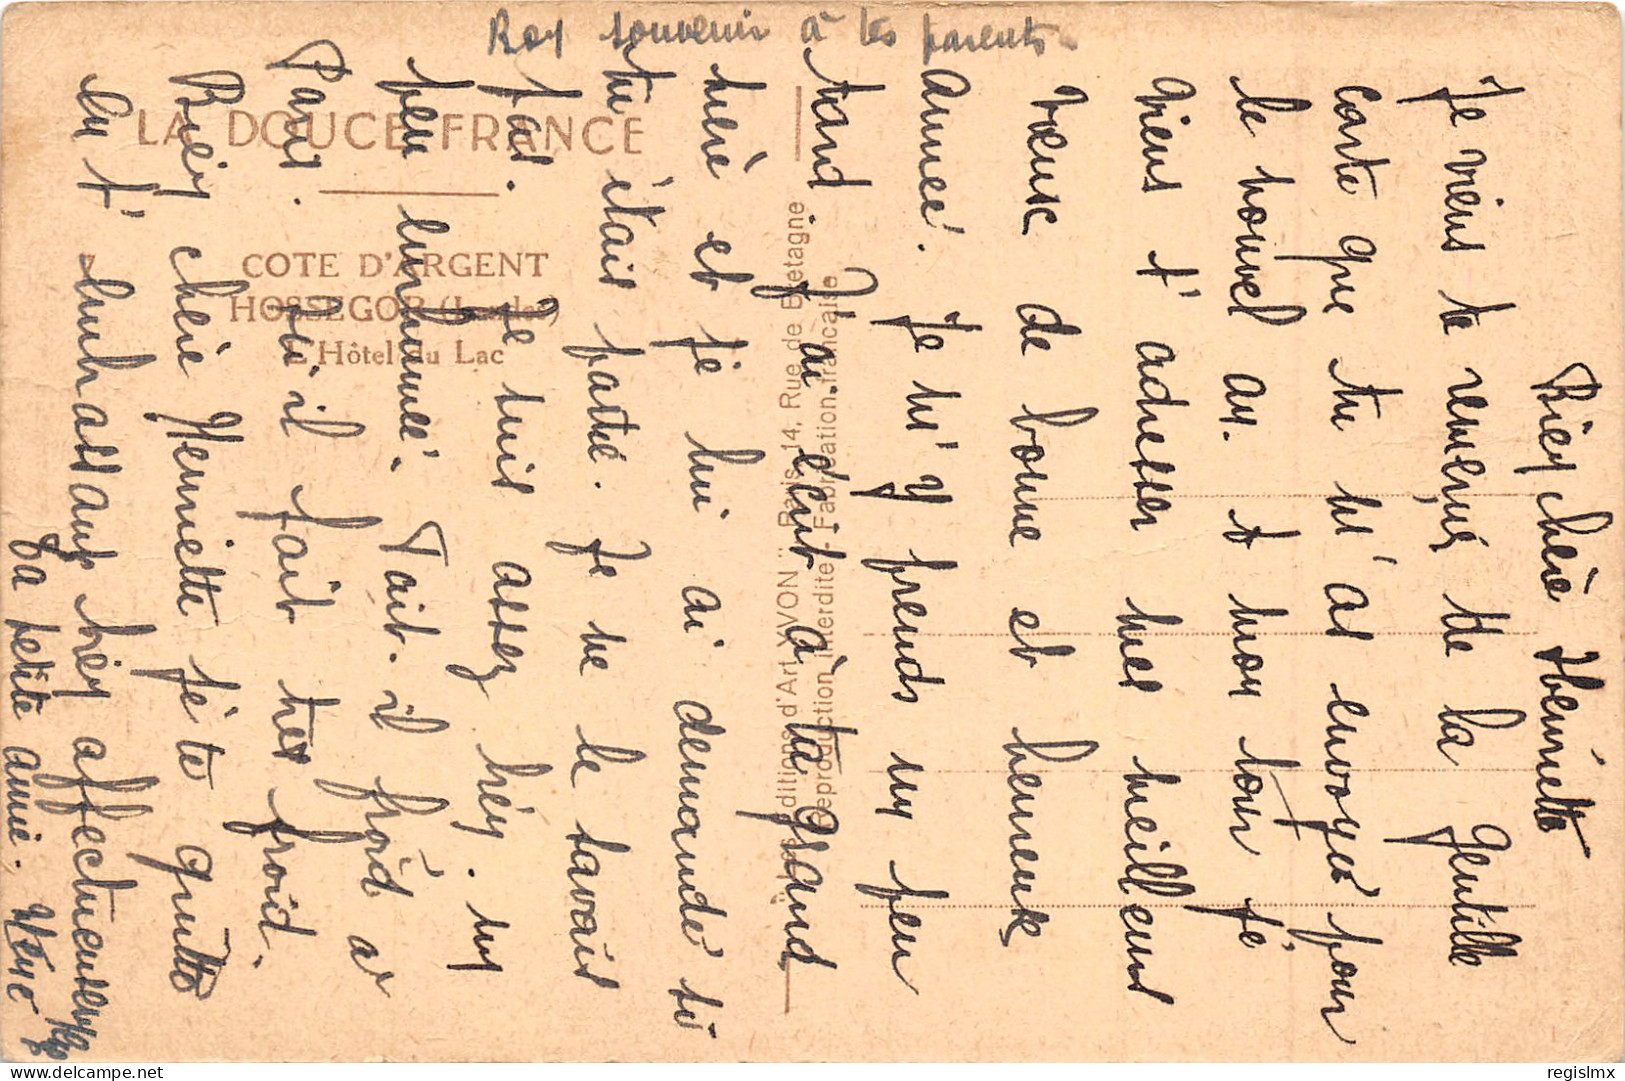 Bon souvenir à tes parents
Bien chère Henriette
Je viens te remercier de la gentille
carte que tu m'as envoyée pour
le nouvel an. A mon tour je
viens t'adresser mes meilleurs
vœux de bonne et heureuse
année. Je m'y prends un peu
tard. J'ai écrit à ta grand
mère et je lui ai demandé si
tu étais partie. Je ne le savais
pas. Je suis assez bien. un
peu enrhumée. Fait-il froid a
Paris. Ici il fait tres froid.
Bien chère Henriette je te quitte
en t'embrassant bien affectueusement
Ta petite amie.
LA DOUCE FRANCE
COTE D'ARGENT
HOSSEGOR (Landes)
L'Hôtel du Lac
Editions d'Art YVON - Paris, 14, Rue de Bretagne
Reproduction interdite - Fabrication française
delcampe.net
regislmx